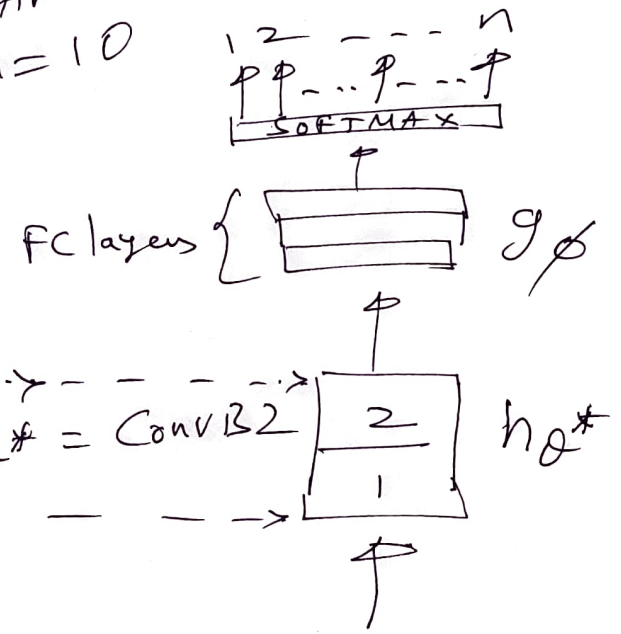 = 10
1 2 - - - - n
SOFTMAX
FC layers { gφ
* = ConvB2
2
1
hθ*